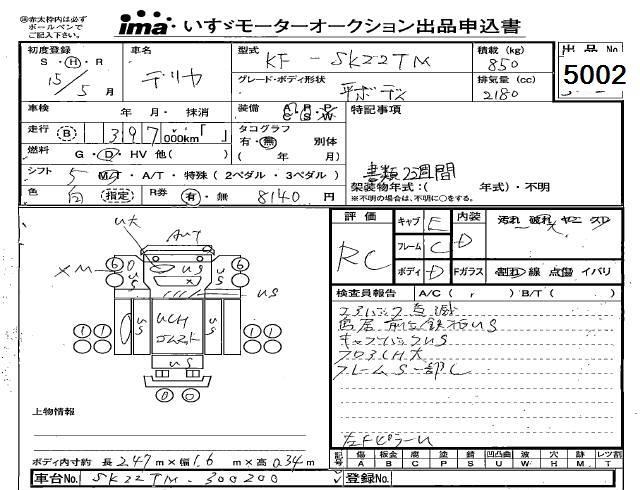 赤太枠内は必ず
ボールペンで
ご記入下さい。
ima いすゞモーターオークション出品申込書
初度登録 車名 型式 KF - SK22TM 積載 (kg) 850 出品 No. 5002
S・H・R 15/5 月 デリカ グレード・ボディ形状 平ボディ 排気量 (cc) 2180
車検 年 月・抹消 装備 特記事項
走行 B 397 000km「 」 タコグラフ 有・無 別体
燃料 G・D・HV 他( ) ( 年 月)
書類23週間
シフト 5 MT・A/T・特殊(2ペダル・3ペダル)
架装物年式:( 年式)・不明
※不明の場合は、不明に○をする。
色 白 (指定) R券 有・無 8140 円
評価 RC
キャブ E 内装 D 汚れ 破れ ヤニ スレ
フレーム C
ボディ D Fガラス 割れ 線 点傷 イバリ
検査員報告 A/C ( , ) B/T ( )
エアバック点滅
鳥居 前立鉄板US
キャブバックUS
フロアCH大
フレームS一部C
左FピラーU
U大
AUT
6 0 US 6
×M
US
US UCH ゴムマット US
1 1 1 1
US
0 0
上物情報
ボディ内寸約 長 2.47 m×幅 1.6 m×高 0.34 m
記号 傷 A 板金 B 腐 C 塗 P 錆 S 凹凸曲 U 波 W 穴 H 跡 M レツ割 T
車台No. SK22TM-300200 登録No.